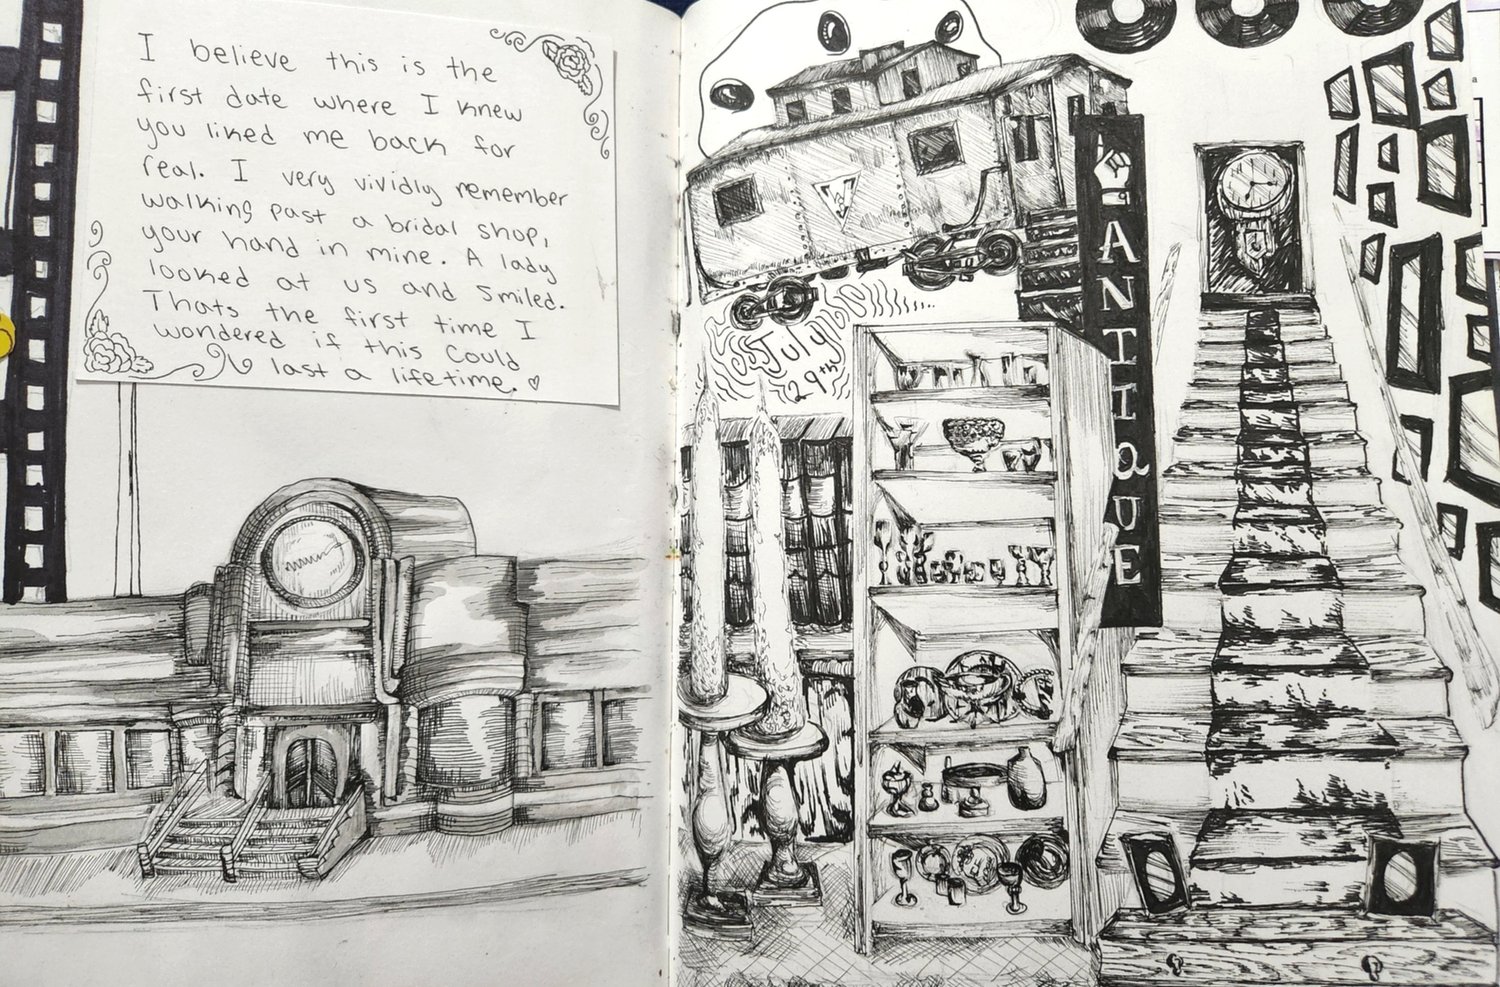 I believe this is the
first date where I knew
you liked me back for
real. I very vividly remember
walking past a bridal shop,
your hand in mine. A lady
looked at us and smiled.
Thats the first time I
wondered if this could
last a lifetime. ♡
July
29th
ANTIQUE